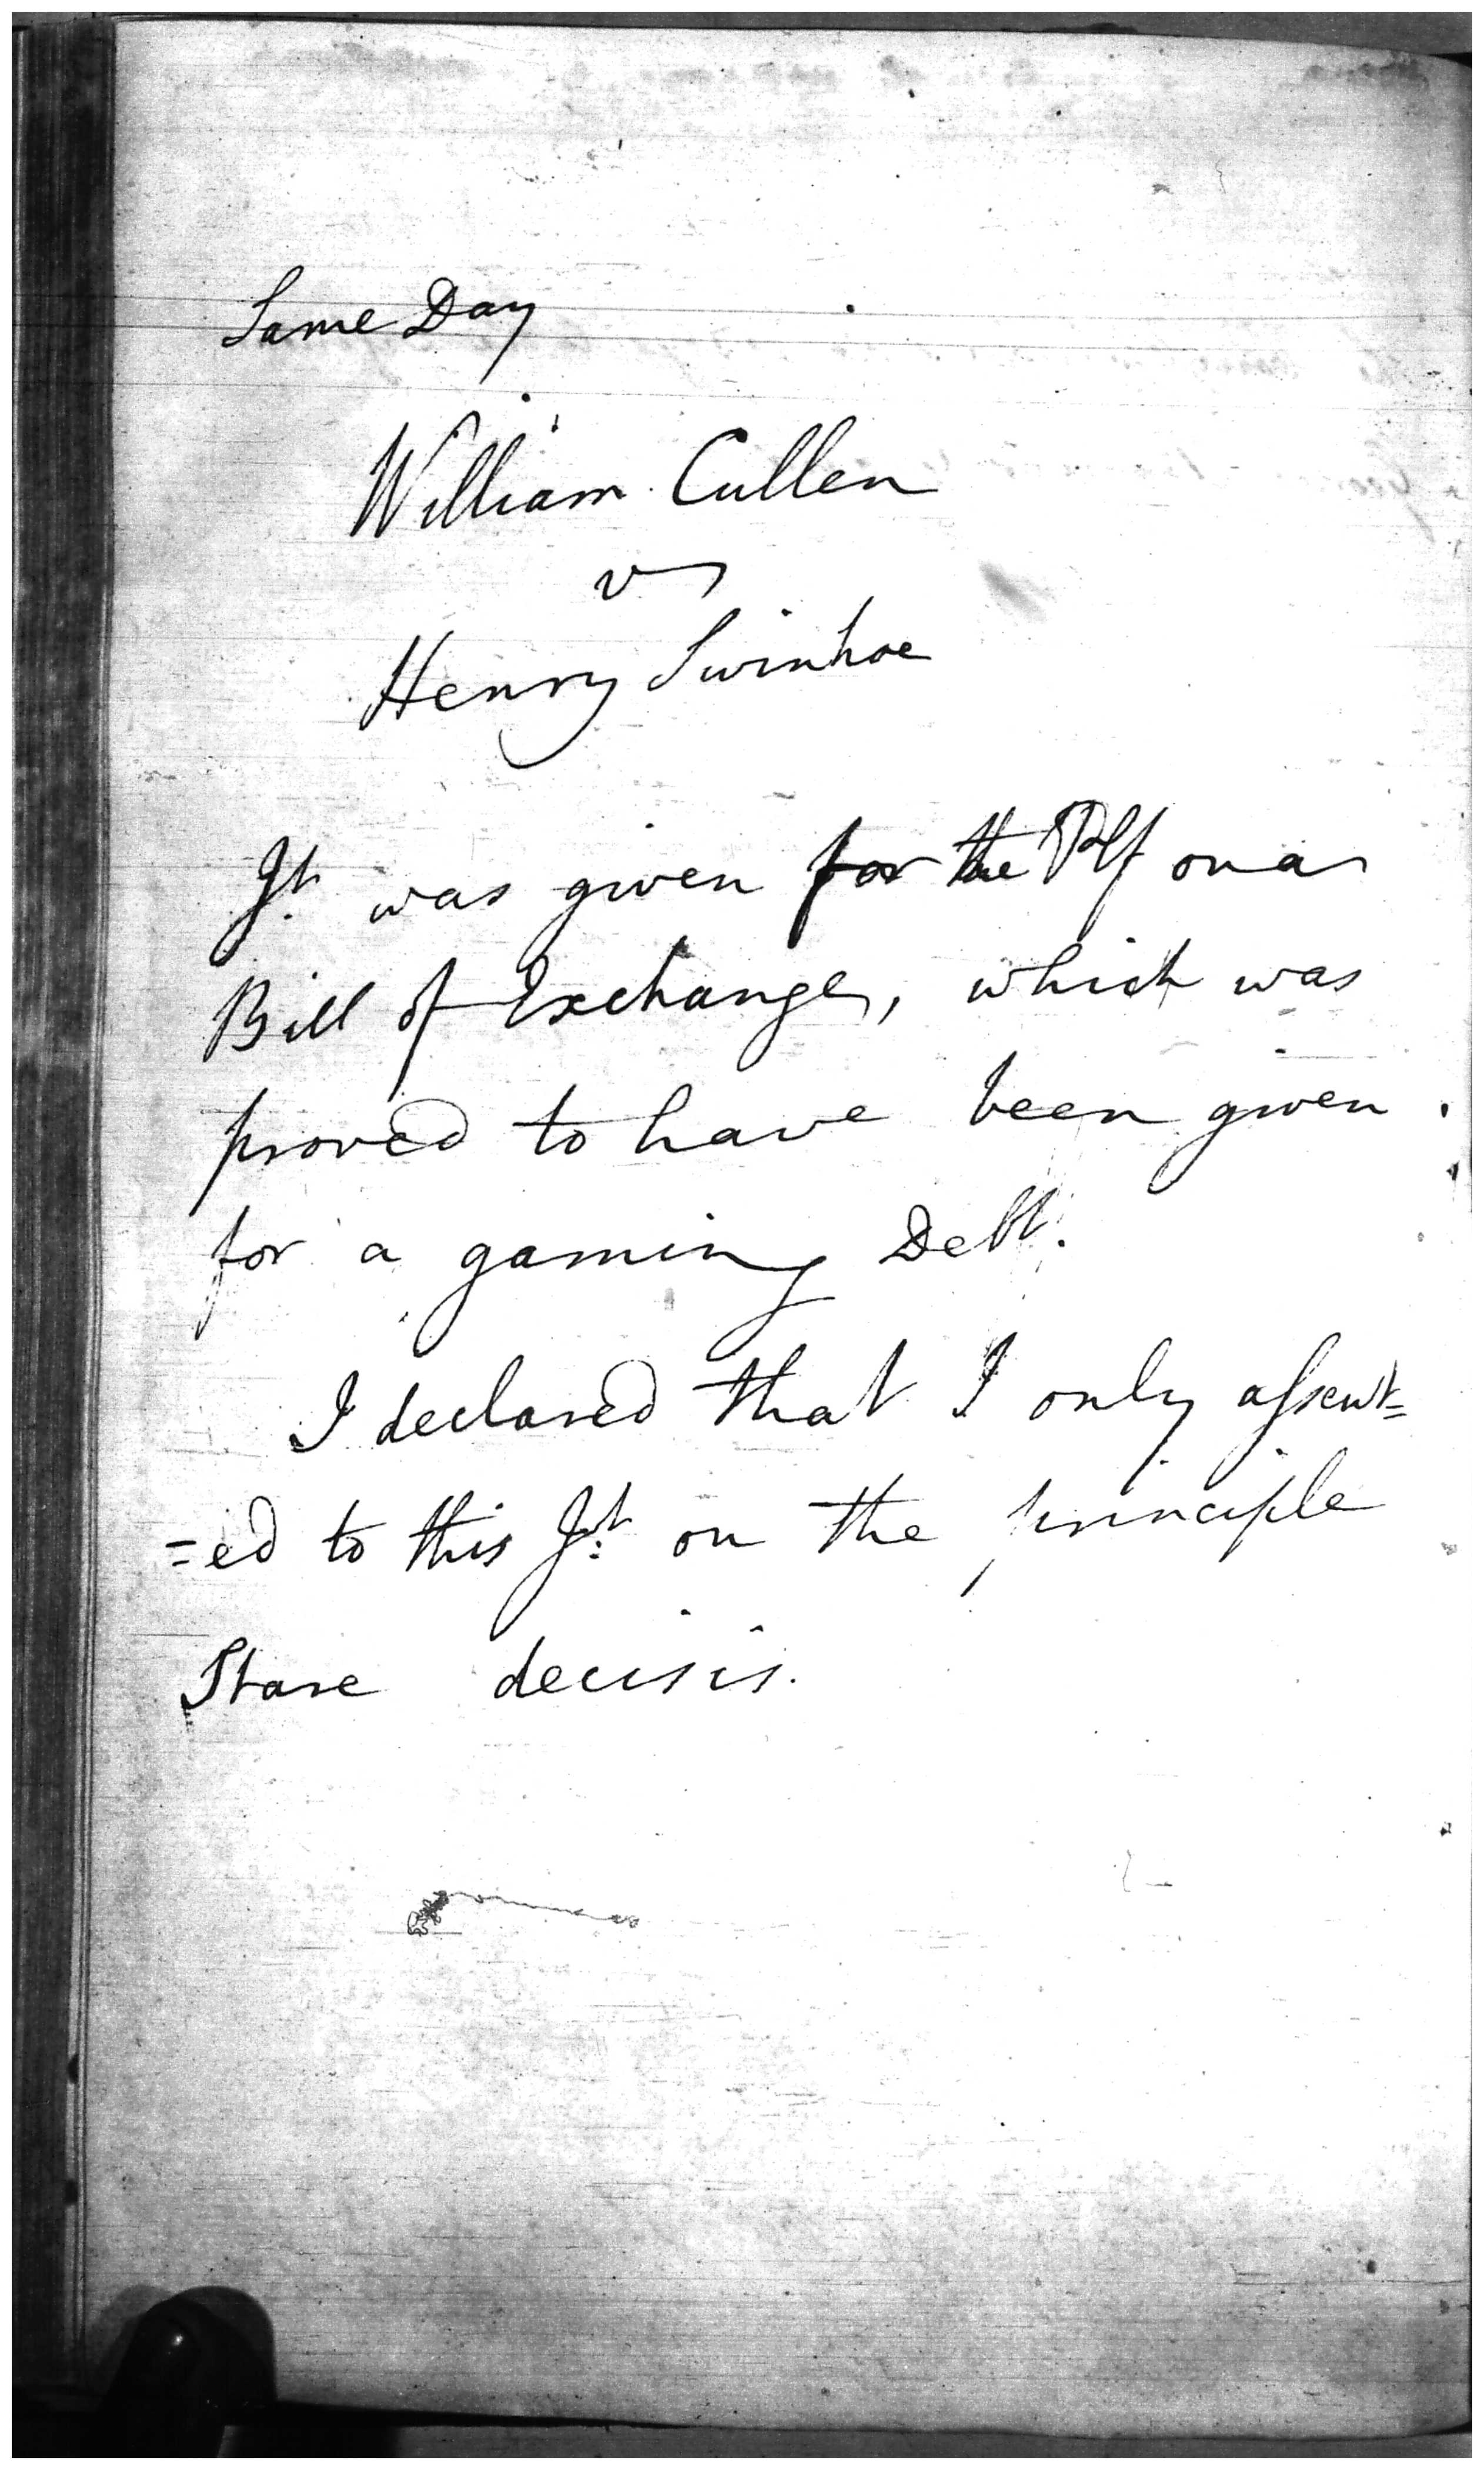 Same Day
William Cullen
vs
Henry Swinhoe
Jt. was given for the Plf on a
Bill of Exchange, which was
proved to have been given
for a gaming Debt.
I declared that I only assent=
=ed to this Jt. on the principle
Stare decisis.